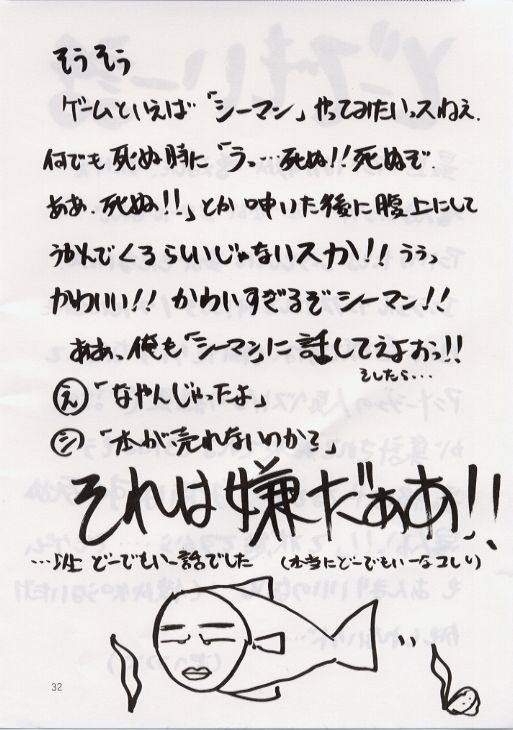 そうそう
ゲームといえば「シーマン」やってみたいっスねえ.
何でも死ぬ時に「うっ…死ぬ!!死ぬぞ.
ああ.死ぬ!!」とか呻いた後に腹上にして
うかんでくるらしいじゃないスか!!ううっ
かわいい!!かわいすぎるぞシーマン!!
ああっ俺も「シーマン」に話してえよおっ!!
そしたら…
え「なやんじゃったよ」
シ「本が売れないのかう」
それは嫌だああ!!
…以上どーでもいー話でした (本当にどーでもいーなコレり)
32